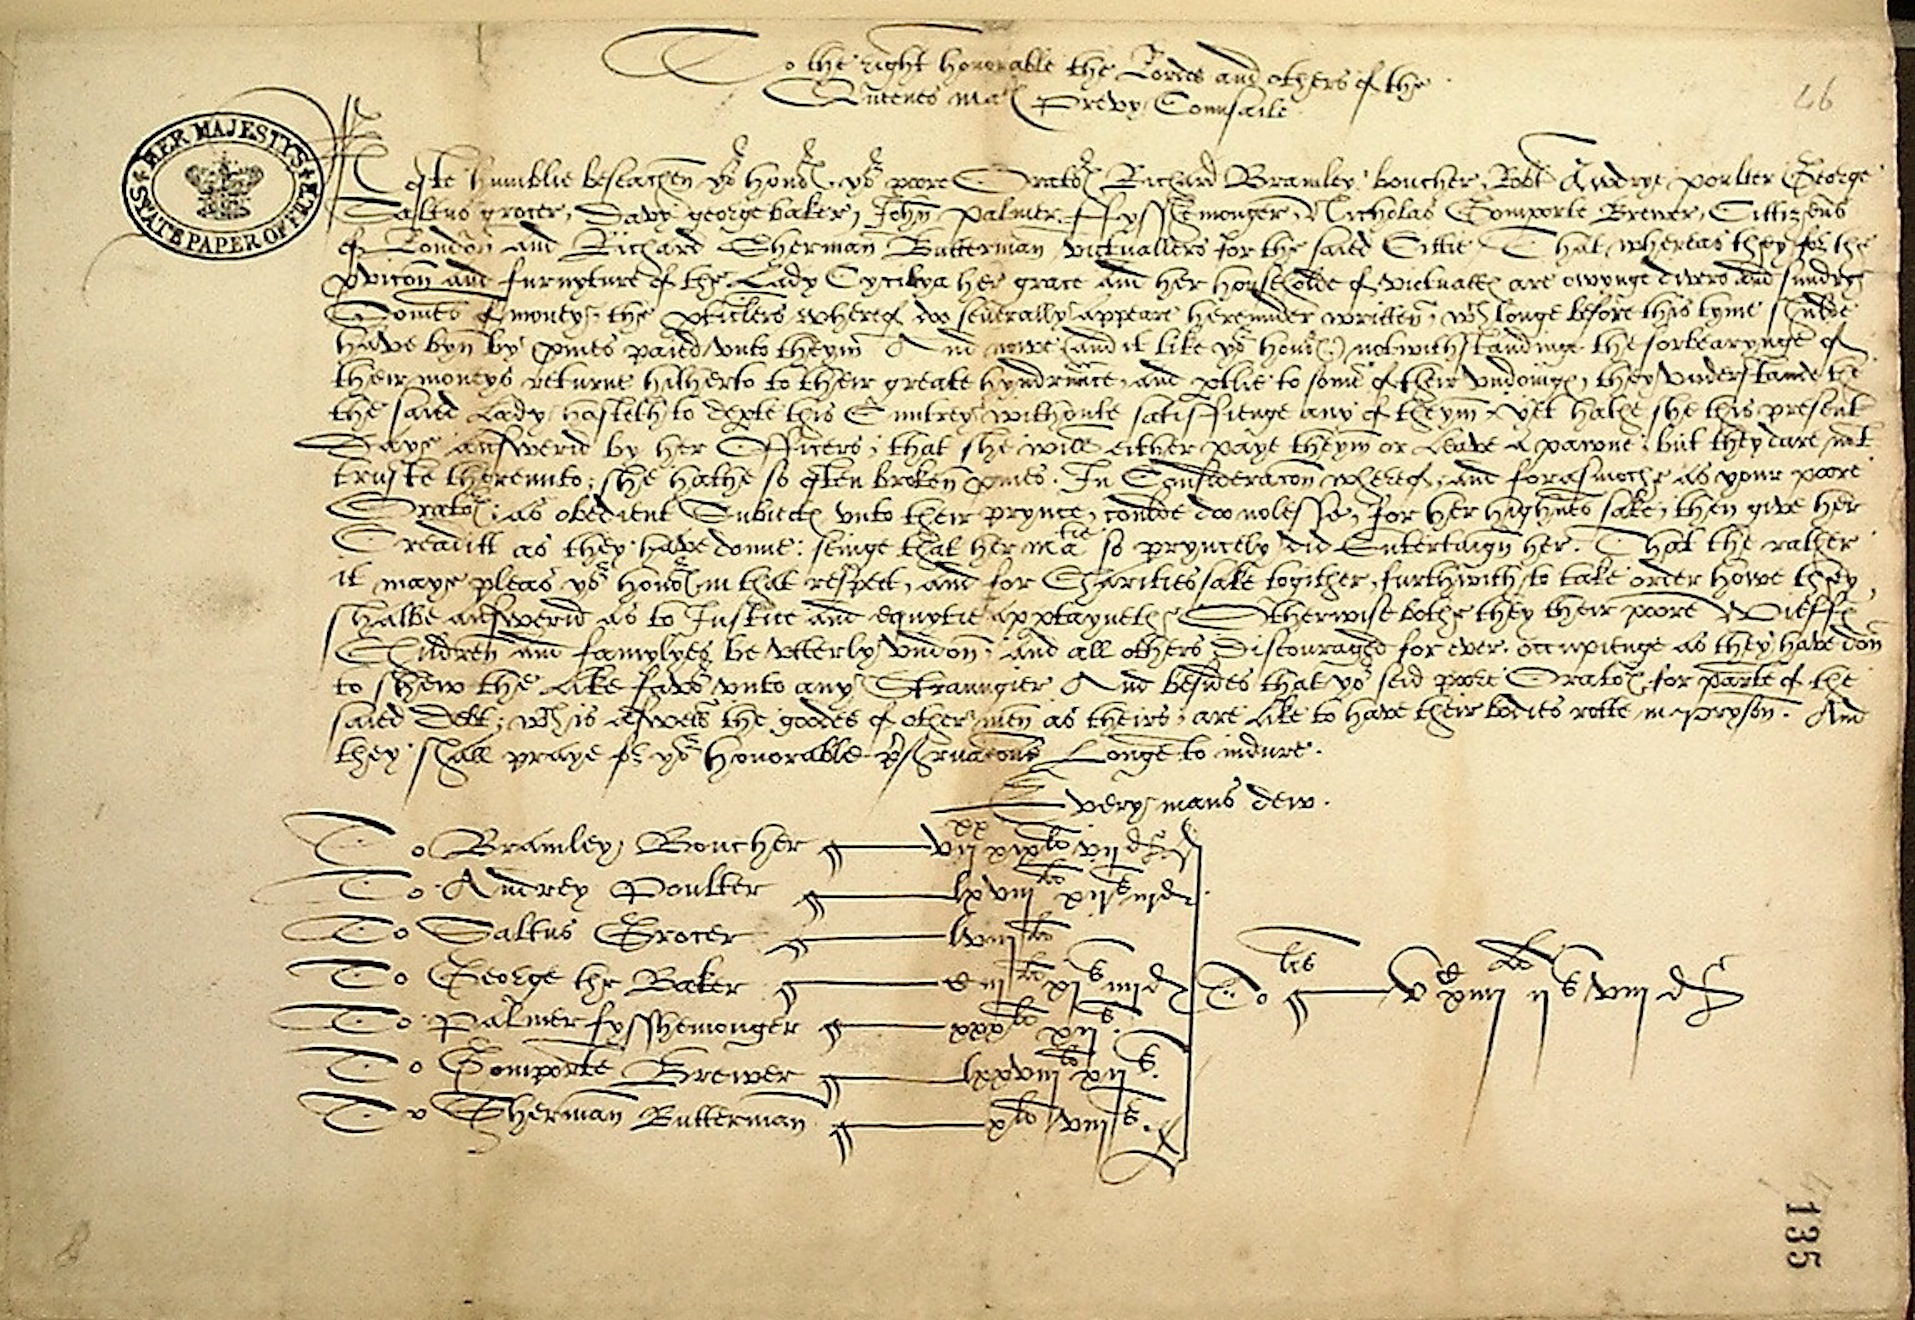 To the right honorable the Lordes and others of the
Quenes Ma{ts} Prevy Counsaile
26
HER MAJESTY'S STATE PAPER OFFICE
Moste humblie beseachen yor honors yor poore Orators Richard Bramley boucher, Robt Awdrye poulter George
Saltus grocer, Davy george baker, John Palmer ffysshemonger, Nicholas Gomporte Brewer, Cittizens
of London and Richard Sherman Butterman victuallers for the saied Cittie That whereas they for the
pvicon and furnyture of the Lady Cycilya her grace and her householde of victualles are owynge divers and sundry
Somes of money, the pticlers whereof do severally appeare hereunder written, wch longe before this tyme shulde
have byn by pmes paied vnto theym And nowe (and it like yor honors) notwithstandinge the forbearynge of
their moneys returne hitherto to their greate hyndraunce, and ptlie to some of their vndoinge, they vnderstande the
the saied Lady hasteth to depte this Cuntrey withoute satisffienge any of theym yet hathe she this present
Daye answerid by her Officers, that she will either paye theym or leave a pawne, but they dare not
truste therevnto, she hathe so often broken pmes. In Consideracon whereof, and forasmoche as your poore
Orators, as obedient Subiects vnto their prynce, coulde doo nolesse, for her highnes sake, then give her
Creaditt as they have donne: seinge that her matie so pryncely did Entertaign her. That the rather
it maye pleas yor honors in that respect, and for Charities sake togither, furthwith to take order howe they
shalbe answerid as to Justice and equytie apptayneth Otherwise bothe they their poore Wieffes
Children and famylyes be vtterly vndon, and all others Discouraged for ever, occupienge as they have don
to shew the like favor vnto any Straungier And besides that yor seid poore Orators for parte of the
saied Debt, wch is aswell the goodes of other men as theirs, are like to have their bodies rotte in pryson. And
they shall praye for yor honorable pservacons Longe to indure.
Every mans dew.
To Bramley Boucher vii xx xix li vii d
To Audrey Poulter lxviii li xii s iii d
To Saltus Grocer lviii li
To George the Baker c iii li xi s iiii d
To Palmer fysshemonger xxx li xii s
To Gomporte Brewer lxxviii li xii s.
To Sherman Butterman x li viii s.
Totlis v c xiiii li ii s viii d
135